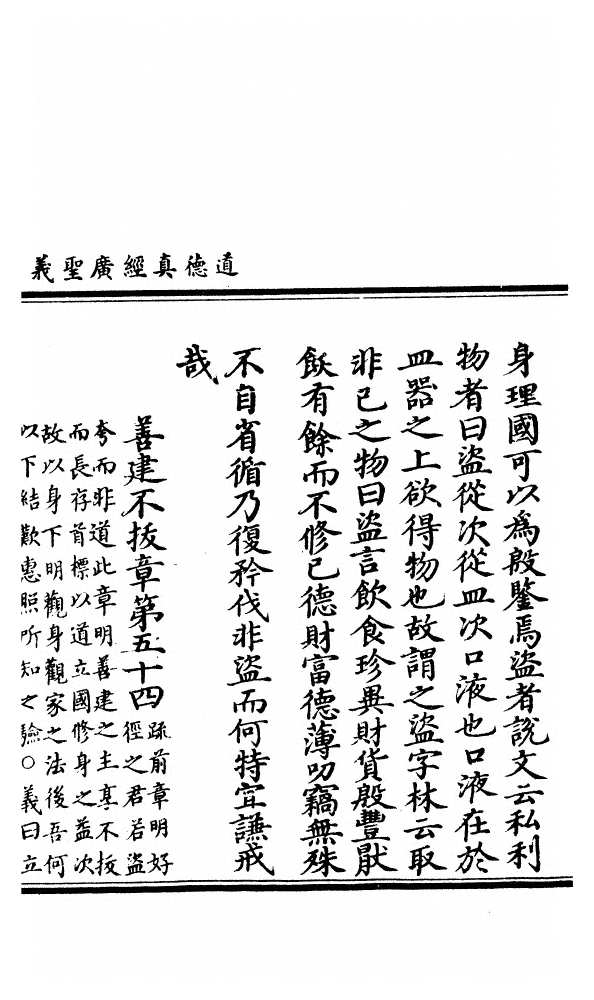 道德真經廣聖義
身理國可以為殷鑒焉盜者說文云私利
物者曰盜從次從皿次口液也口液在於
皿器之上欲得物也故謂之盜字林云取
非己之物曰盜言飲食珍異財貨殷豐猒
飫有餘而不修己德財富德薄叨竊無殊
不自省循乃復矜伐非盜而何特宜謙戒
哉
善建不拔章第五十四
疏前章明好
徑之君若盜
夸而非道此章明善建之主享不拔
而長存首標以道立國修身之益次
故以身下明觀身觀家之法後吾何
以下結歎惠照所知之驗○義曰立